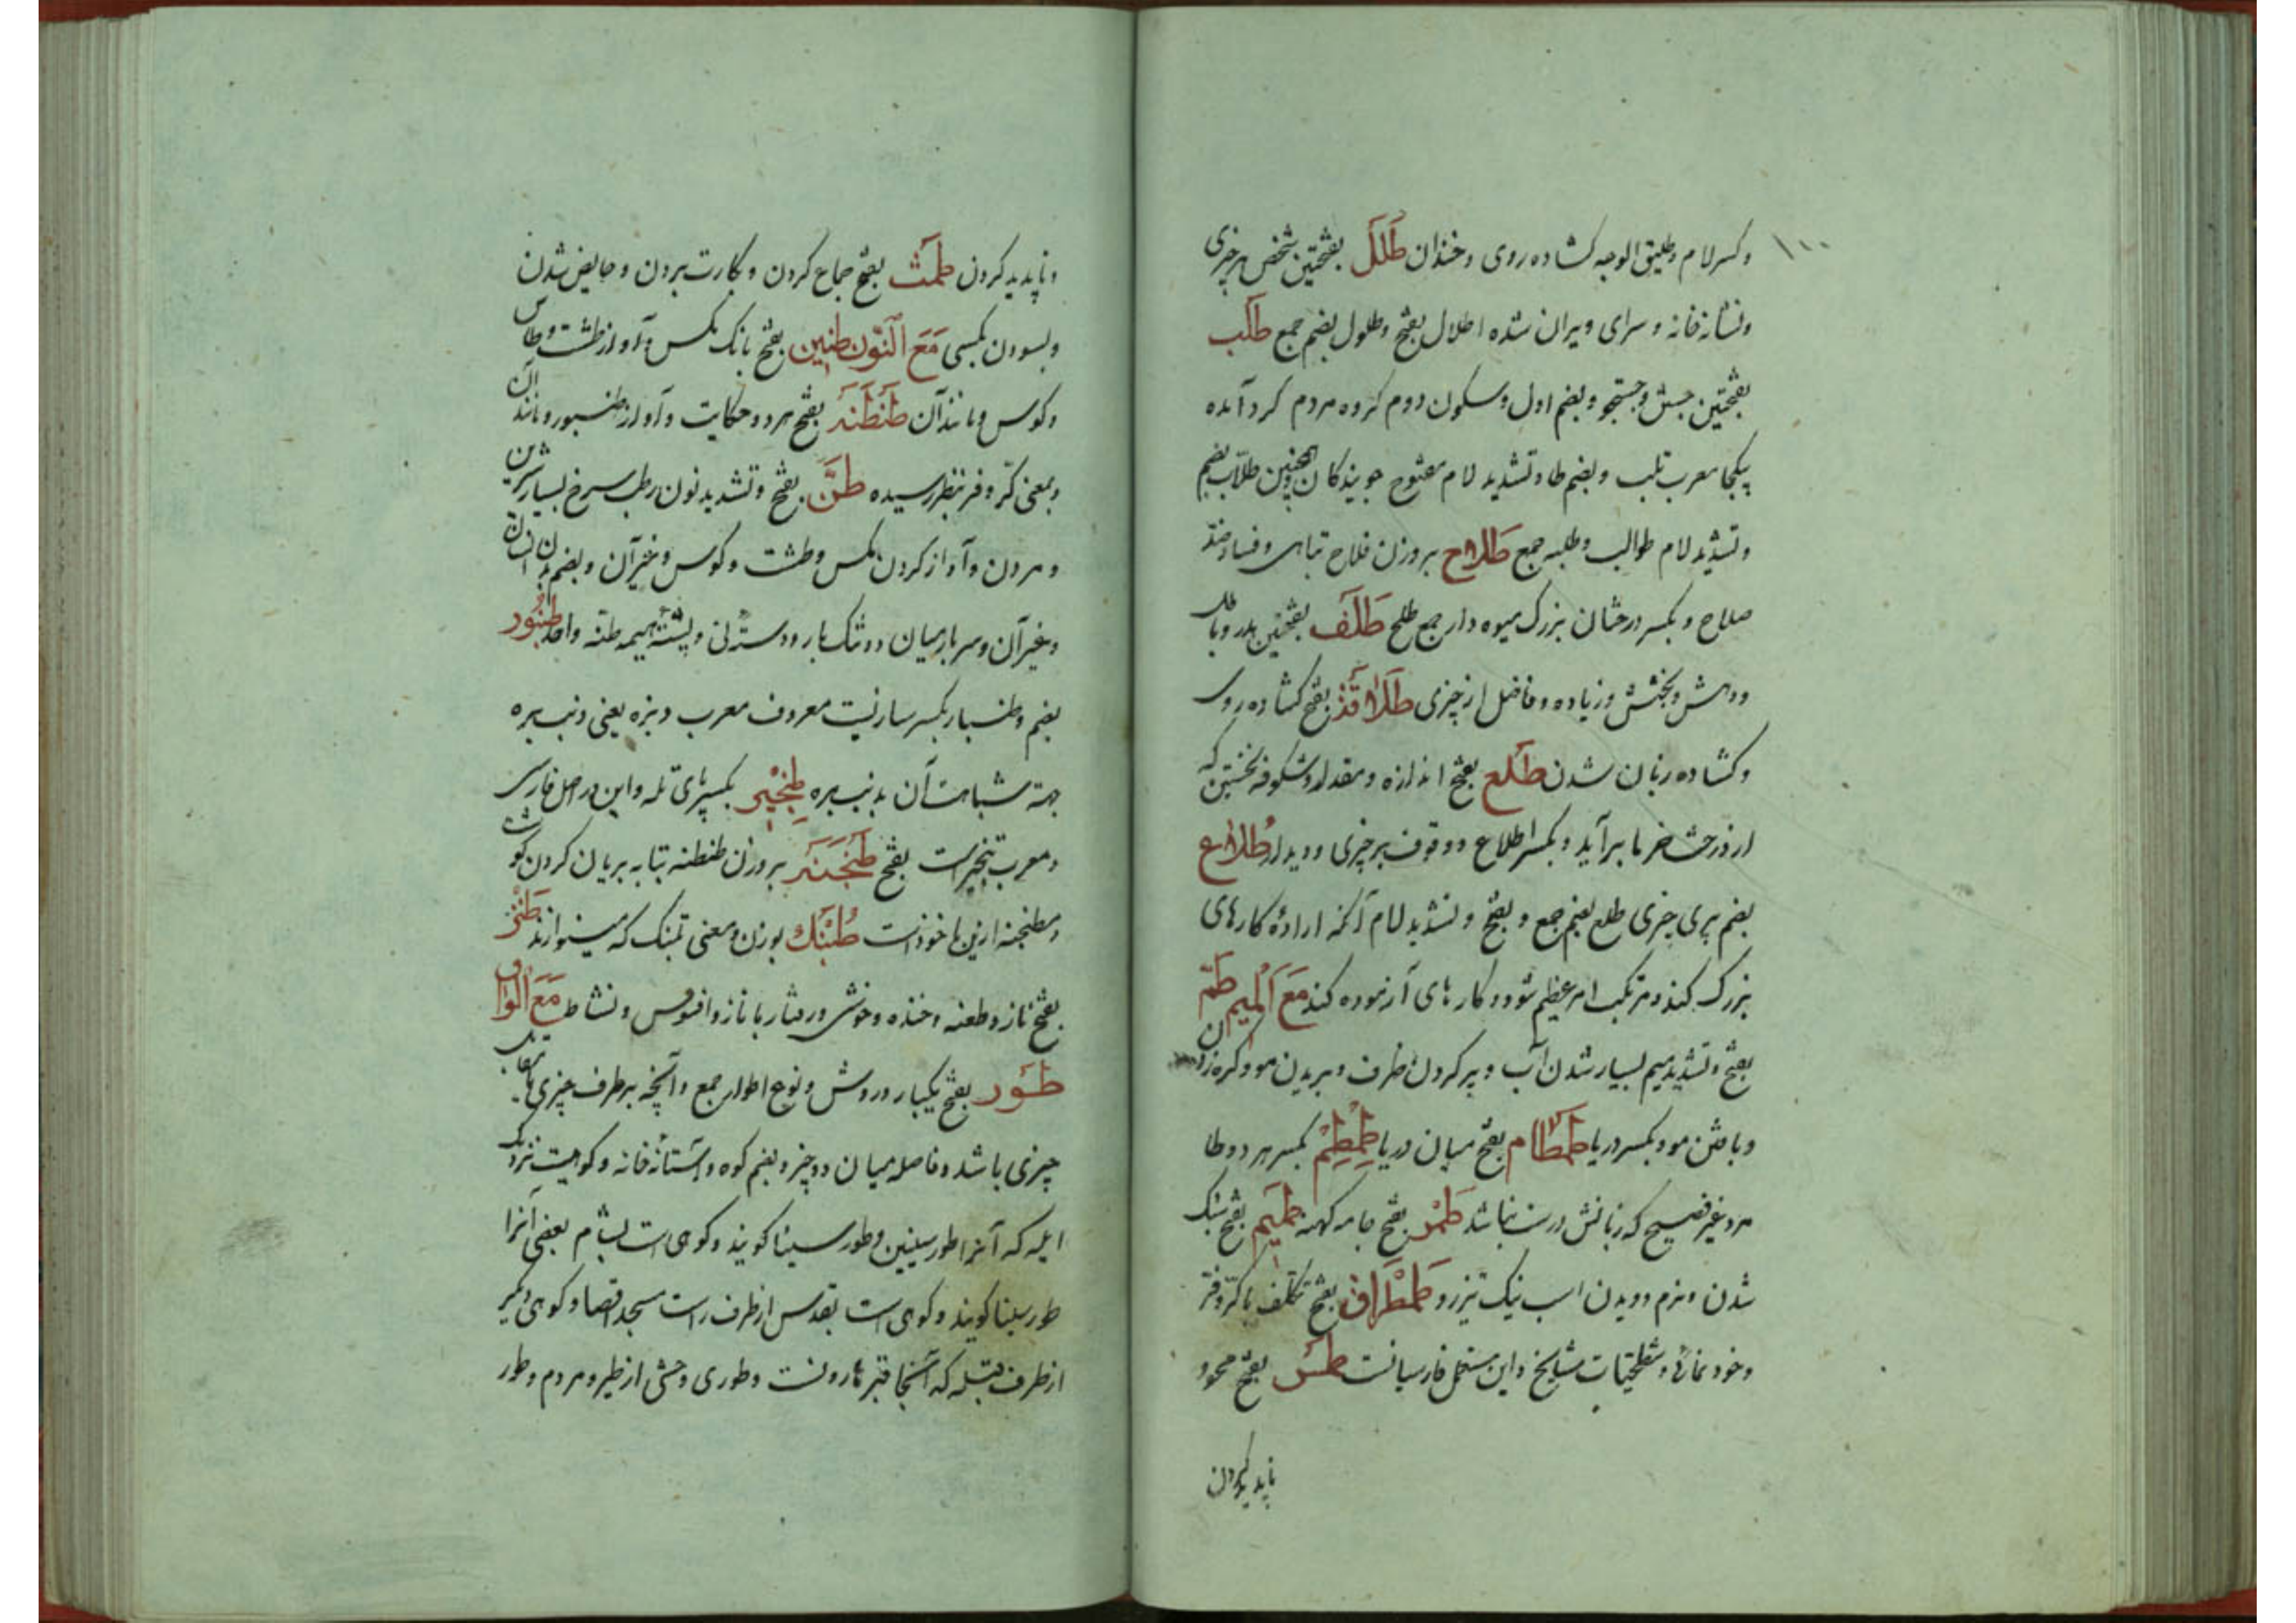 ۱۰۰
وکسر لام و طلیق الوجه کشاده روی و خندان طَلَل بفتحتین شخص هر چیزی
ونشانه خانه و سرای ویران شده اطلال بفتح وطلول بضم جمع طَلَب
بفتحتین جستن و جستجو و بضم اول و سکون دوم کروه مردم کرد آمده
بیکجا معرب تلب و بضم طا و تشدید لام مفتوح جویندکان همچنین طلّاب بضم
و تشدید لام طوالب و طلبه جمع طَلاح بروزن فلاح تباهی و فساد ضد
صلاح و بکسر درختان بزرک میوه دار جمع طلح طَلَف بفتحتین هدر و باطل
و دهش و بخشش و زیاده و فاضل از چیزی طَلاقَة بفتح کشاده روی
و کشاده زبان شدن طَلع بفتح اندازه و مقدار و شکوفه نخستین که
از درخت خرما برآید و بکسر اطلاع و وقوف بر چیزی و دیدار طُلاع
بضم پری چیزی طلع بضم جمع و بفتح و تشدید لام آنکه اراده کارهای
بزرک کند و مرتکب امر عظیم شود و کارهای آزموده کند مَعَ المیم طَمّ
بفتح و تشدید میم بسیار شدن آب و پر کردن ظرف و بریدن مو و کره زدن
و بافتن مو و بکسر دریا طَمطام بفتح میان دریا طِمطِم بکسر هر دو طا
مرد غیر فصیح که زبانش درست نباشد طمر بفتح جامه کهنه طَمیم بفتح سبک
شدن و نرم دویدن اسب نیک تیزرو طَمطَراق بفتح تکلّف با کرّوفرّ
و خودنمائی و شطحیات مشایخ و این مستعمل فارسیانست طَمس بفتح محو و
ناپدید کردن
و ناپدید کردن طَمَث بفتح جماع کردن و بکارت بردن و حایض شدن
و بسودن بکسی مَعَ النّون طنین بفتح بانک مکس و آواز طشت و طاس
و کوس و مانند آن طَنطَنَه بفتح هر دو حکایت و آواز طنبور و مانند آن
و بمعنی کرّ و فر بنظر رسیده طَنّ بفتح و تشدید نون رطب سرخ بسیار شیرین
و مردن و آواز کردن مکس و طشت و کوس و غیر آن و بضم بدن انسان
و غیر آن و سر بار میان دو تنک بار و دسته نی و پشته هیمه طنه واحد طُنبُور
بضم و طنبار بکسر سازیست معروف معرب دنبره یعنی دنب بره
جهة شباهت آن بدنب بره طِنجیر بکسر پای تله و این در اصل فارسی
و معرب تنجیر است بفتح طَنجَنَه بروزن طنطنه بتابه بریان کردن کوشت
و مطنجنه ازین ماخوذ است طُنبَک بوزن و معنی تمبک که مینوازند طَنز
بفتح ناز و طعنه و خنده و خوشی و رفتار با ناز و افسوس و نشاط مَعَ الواو
طَور بفتح یکبار و روش و نوع اطوار جمع و آنچه بر طرف چیزی یا مقابل
چیزی باشد و فاصله میان دو چیز و بضم کوه و آستانهٔ خانه و کوهیست نزدیک
ایله که آنرا طور سینین و طور سینا کویند و کوهی است بشام بعضی آنرا
طور سینا کویند و کوهی است بقدس از طرف راست مسجد اقصا و کوهی دیکر
از طرف قبله که آنجا قبر هارونست و طوری وحشی از طیر و مردم و طور